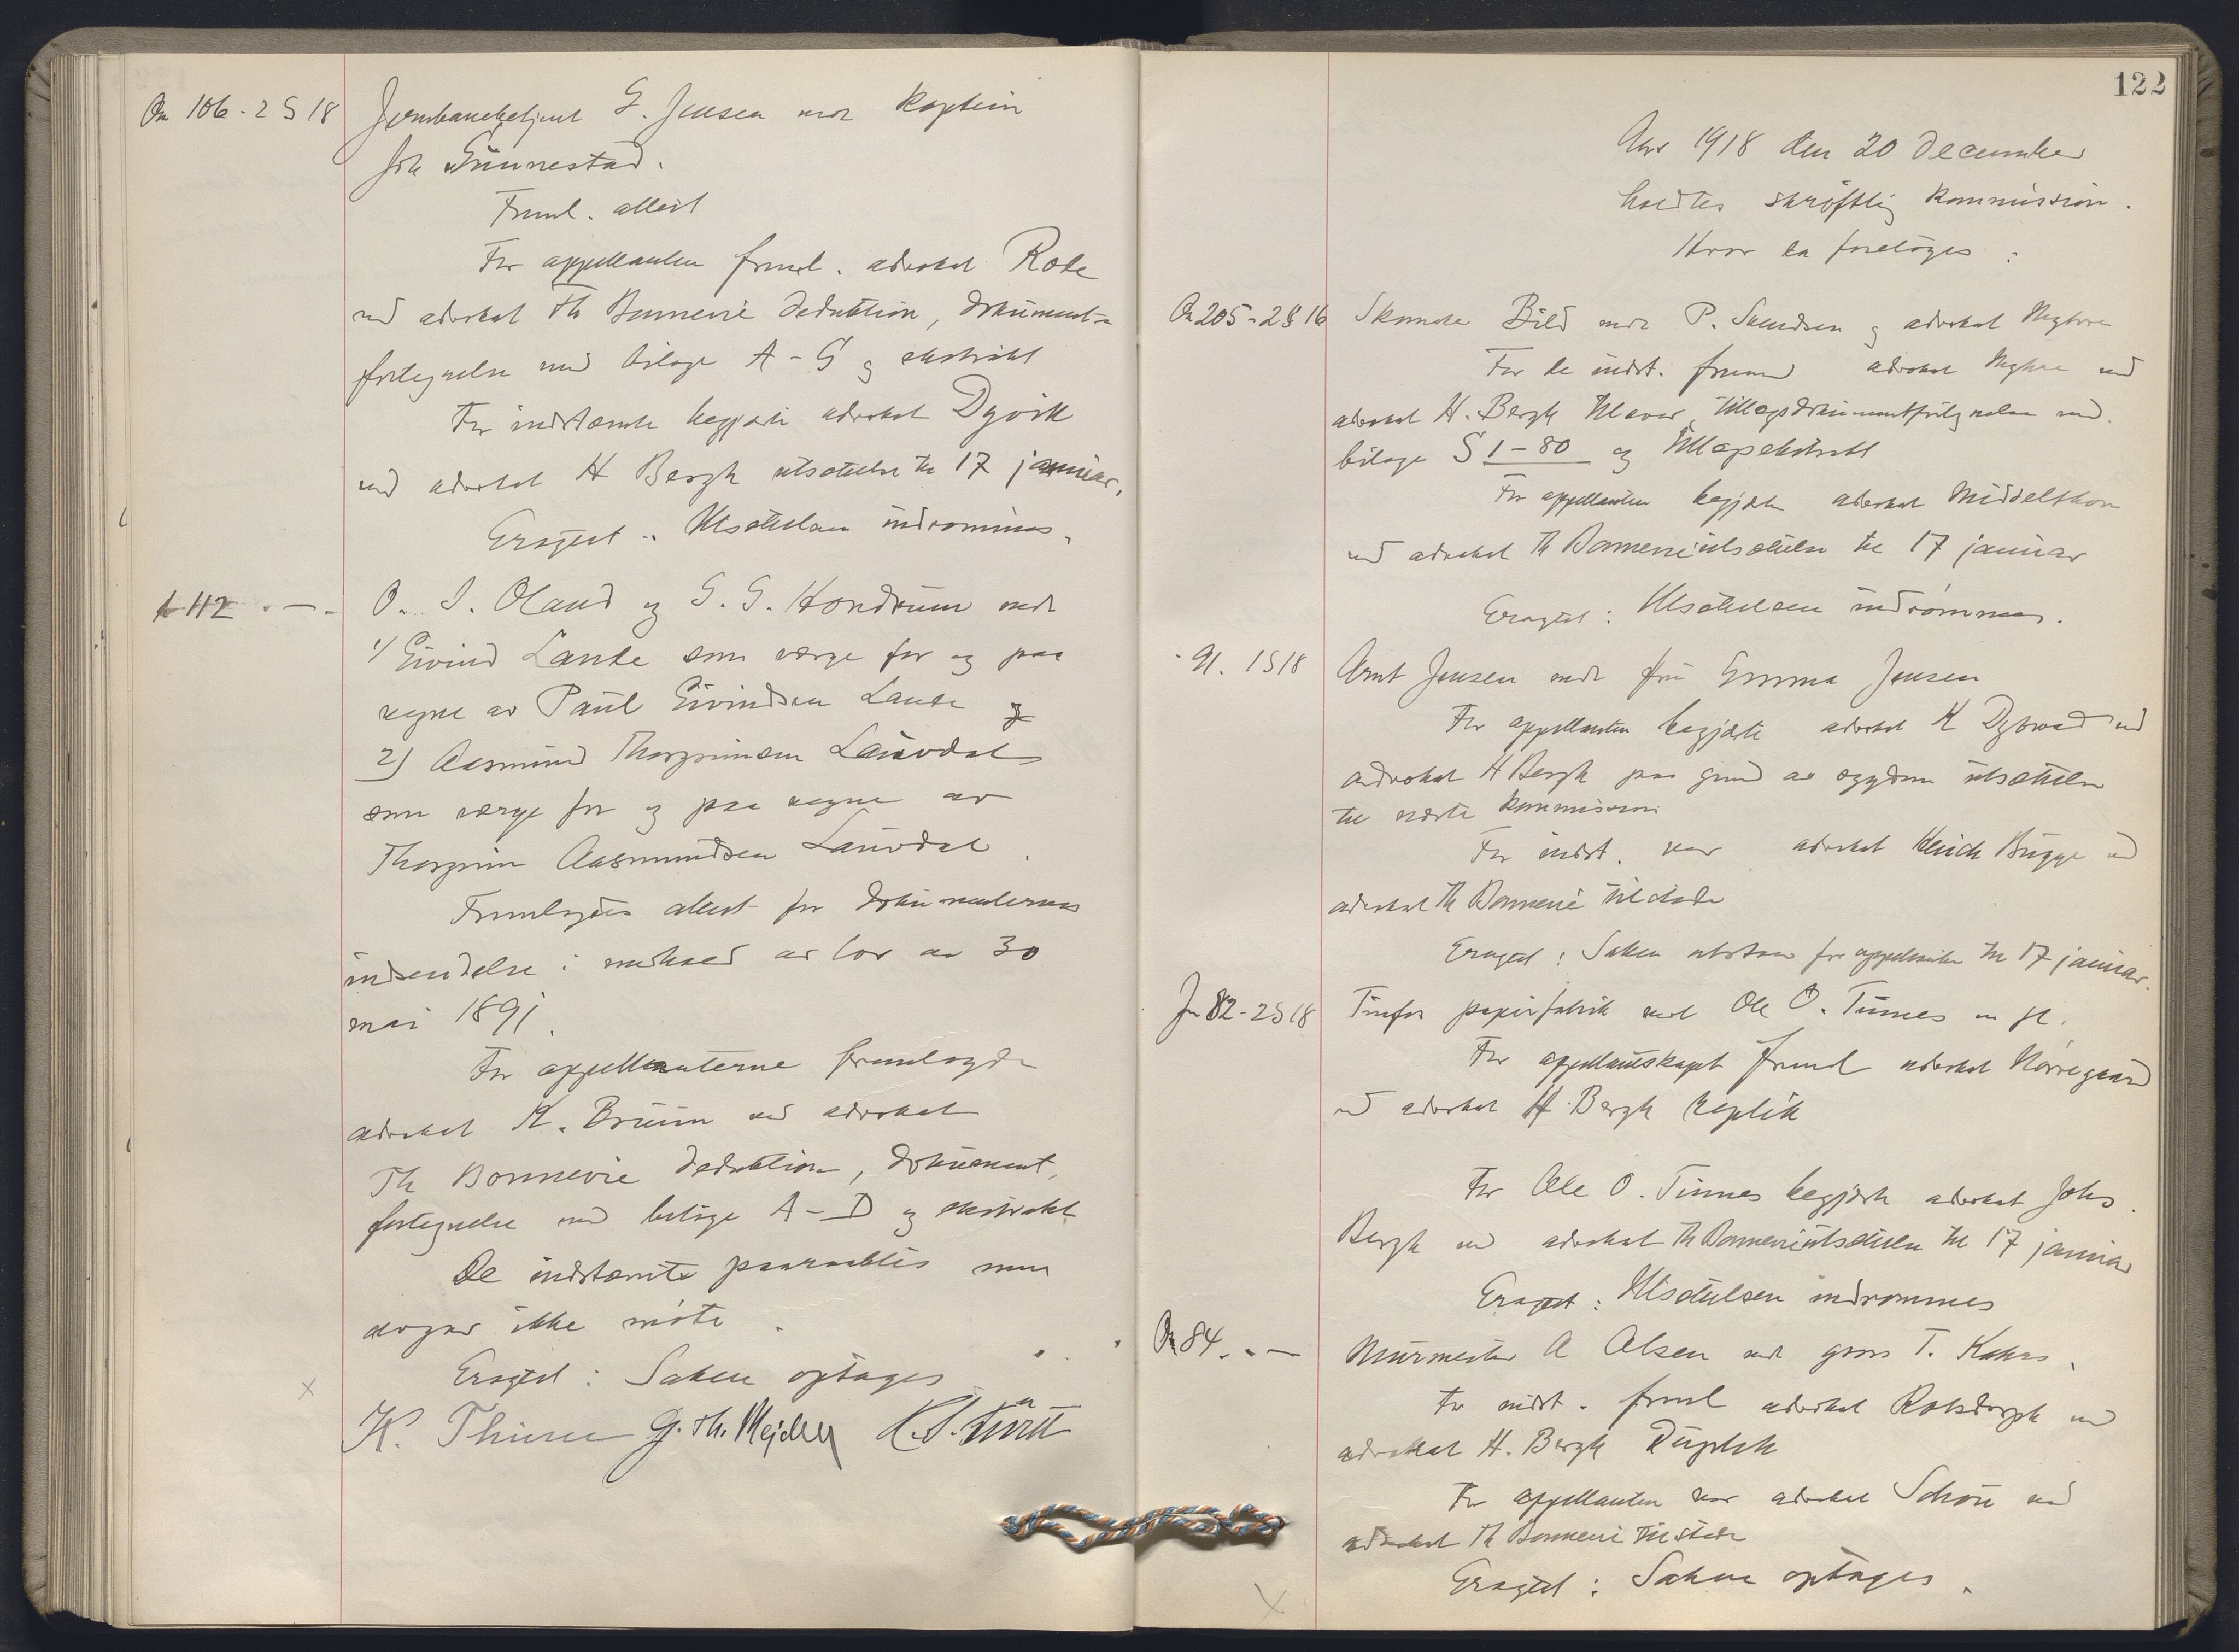 On 106 - 2 S 18
Jernbanebetjent G. Jensen mot kaptein
Joh Gunnestad.
Freml. attest
For appellanten freml. advokat Rode
ved advokat Th Bonnevie deduktion, dokument-
fortegnelse med bilage A - G og ekstrakt
For indstevnte begjærte advokat Dyvik
ved advokat H Bergh utsættelse til 17 januar.
Eragtet: Utsættelsen indrømmes.
112 - " -
O. J. Oland og G. G. Hondrum mot
1/ Eivind Lande som værge for og paa
vegne av Paul Eivindsen Lande og
2) Aasmund Thorgrimsen Lauvdal
som værge for og paa vegne av
Thorgrim Aasmundsen Lauvdal.
Fremlagdes attest for dokumenternes
indsendelse i medhold av lov av 30
mai 1891.
For appellanterne fremlagde
advokat K. Bruun ved advokat
Th Bonnevie deduktion, dokument-
fortegnelse med bilage A - D og ekstrakt
De indstevnte paaraabtes men
ikke møtte.
Eragtet: Saken optages
K. Thinn G. Th. Mejdell
122
Aar 1918 den 20 december
holdtes skriftlig kommission.
Hvor da foretoges:
On 205 - 2 S 16
Bild mot P. Svendsen og advokat Myhre
For de indst. freml advokat Myhre ved
advokat H. Bergh tillægsdokumentfortegnelse med
bilage S 1 - 80 og tillægsekstrakt
For appellanten begjærte advokat Middelthon
ved advokat Th Bonnevie utsættelse til 17 januar
Eragtet: Utsættelsen indrømmes.
91. 1 S 18
Arnt Jensen mot fru Emma Jensen
For appellanten begjærte advokat K Dybwad ved
advokat H Bergh paa grund av sygdom utsættelse
til næste kommission
For indst. var advokat Bugge ved
advokat Th Bonnevie tilstede
Eragtet: Saken utstaar for appellanten til 17 januar.
Jn 82 - 2 S 18
Tinfos papirfabrik mot Ole O. Tinnes m fl.
For appellantskapet freml advokat Nørregaard
ved advokat H Bergh replik
For Ole O. Tinnes begjærte advokat Johs.
Bergh ved advokat Th Bonnevie utsættelse til 17 januar
Eragtet: Utsættelsen indrømmes
On 84. " -
Murmester A Olsen mot gross T. Kahrs.
For indst. freml advokat Rolsdorph ved
advokat H. Bergh Duplik
For appellanten var advokat Schou ved
advokat Th Bonnevie tilstede
Eragtet: Saken optages.